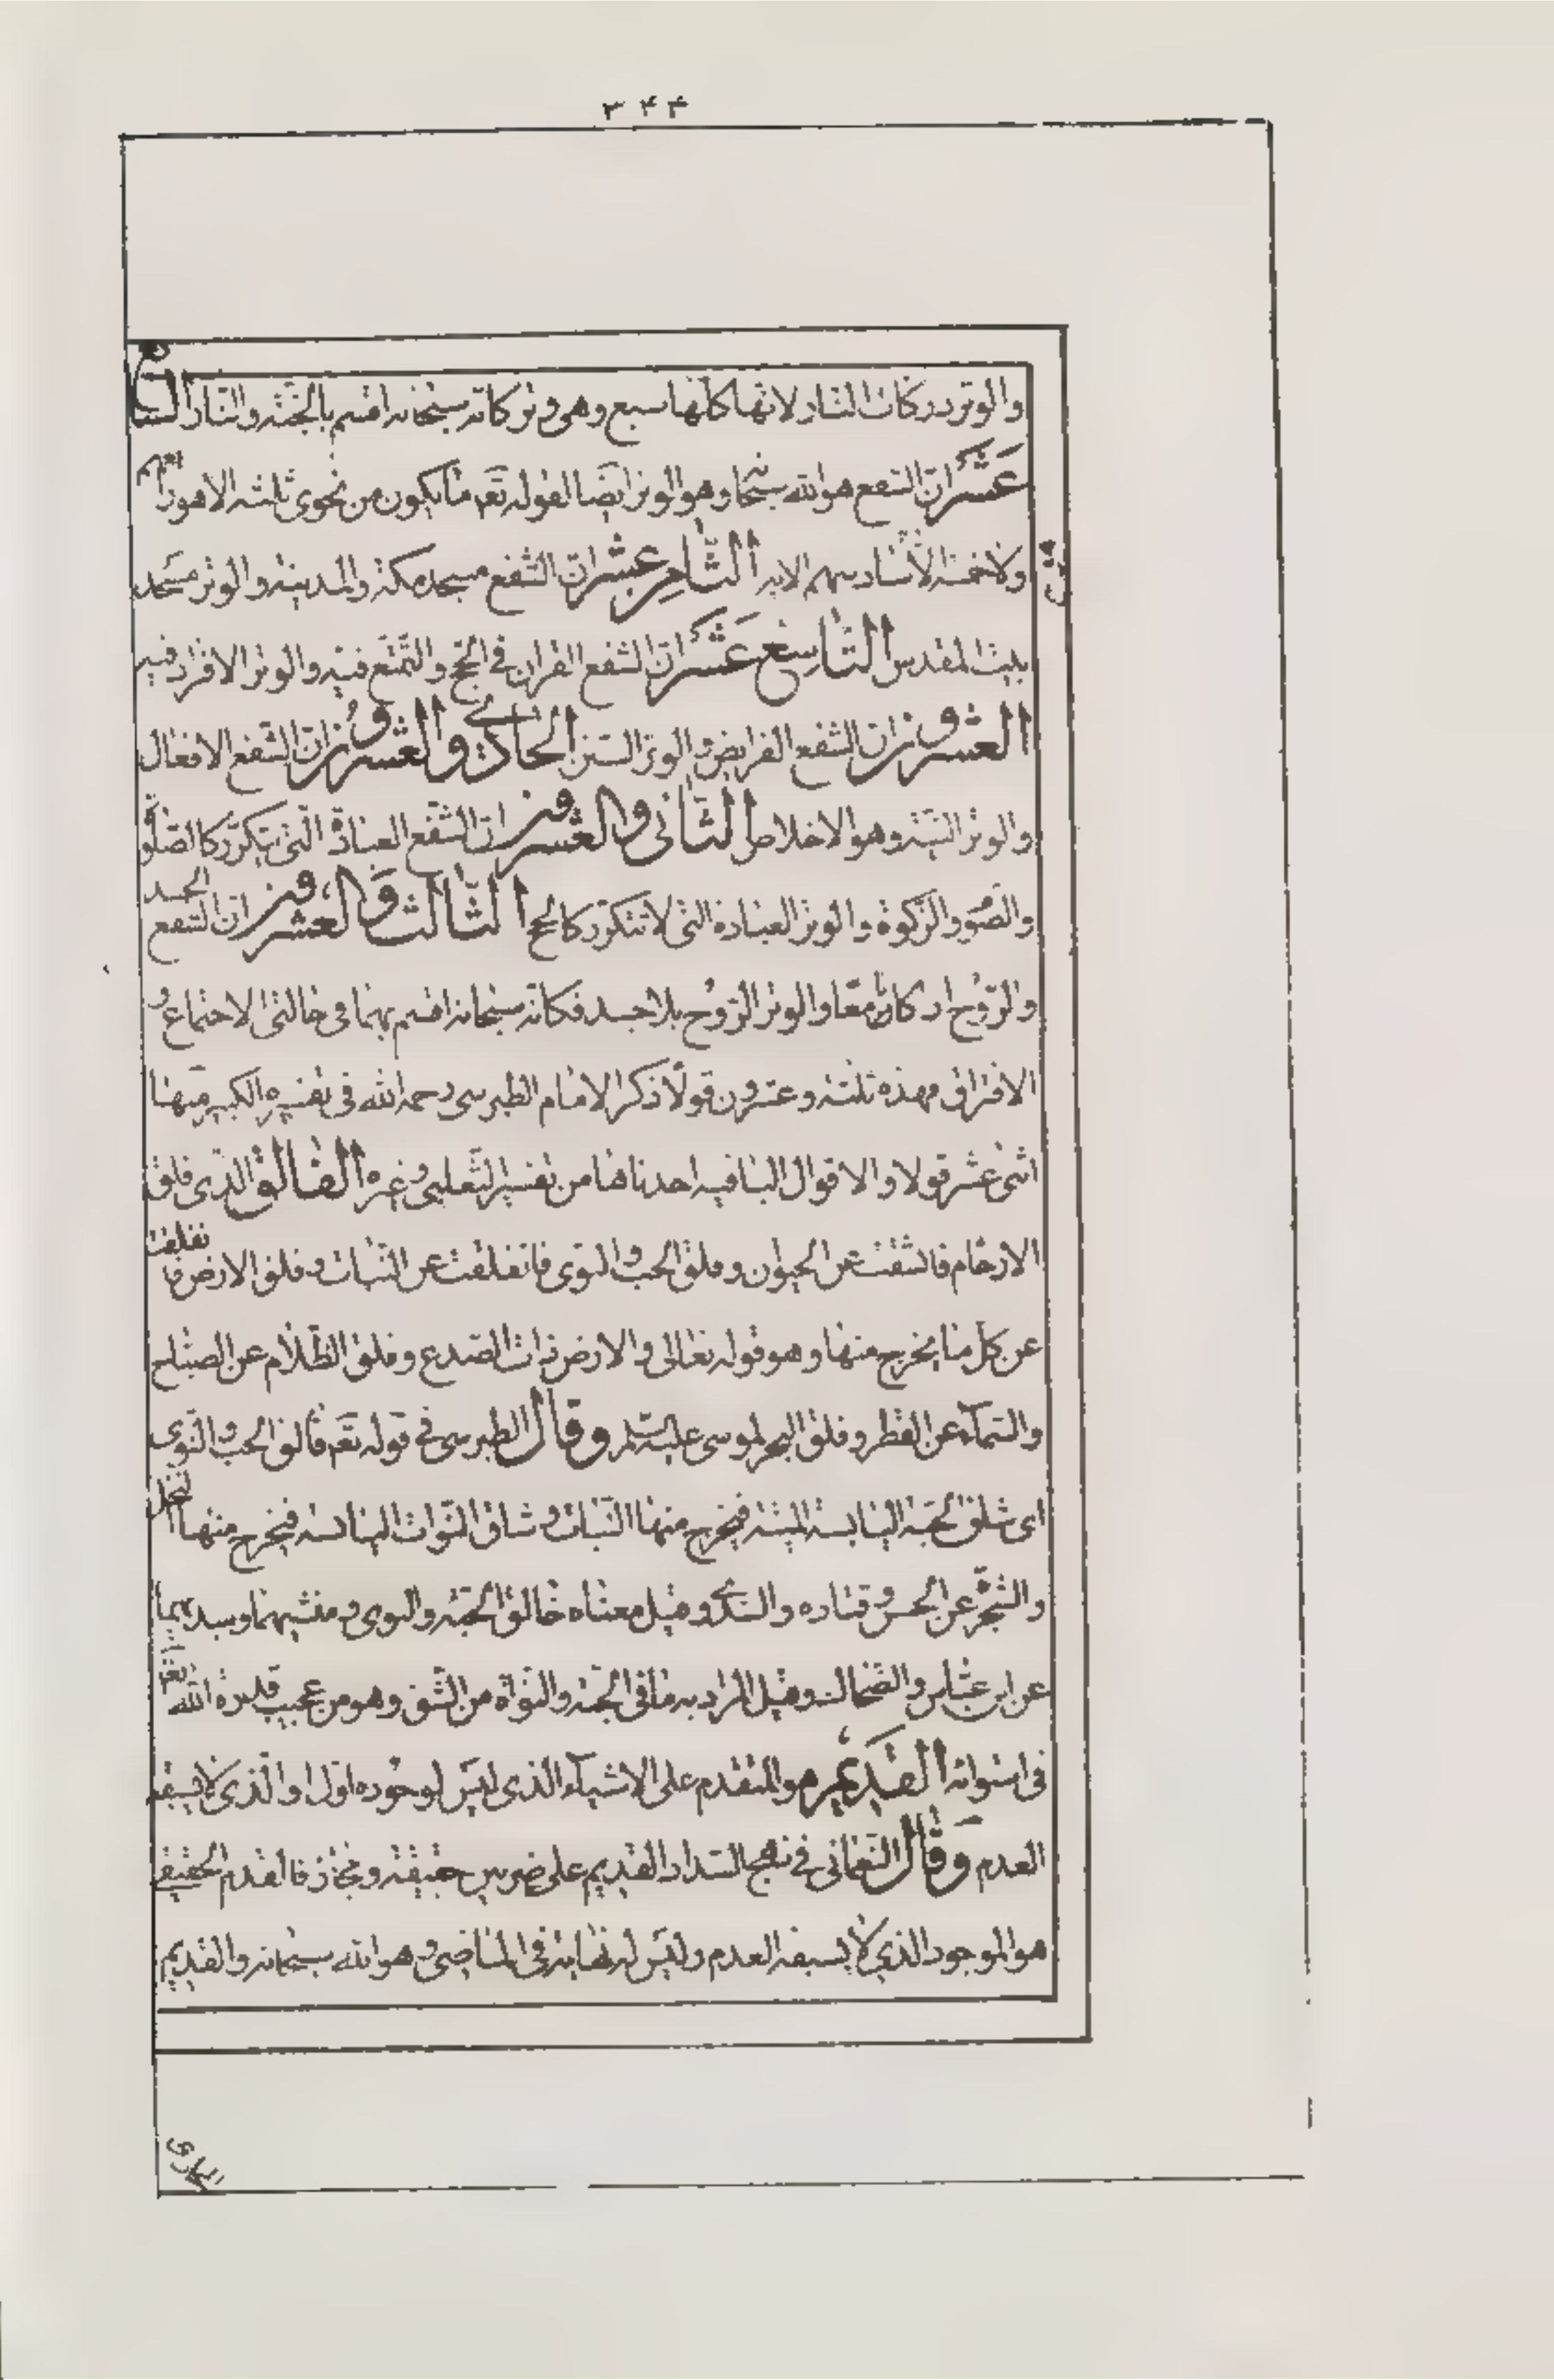 ٣٤٤
والوتر دركات النار لانها كلها سبع وهى وتر كانه سبحانه اقسم بالجنة والنار السابع
عشر ان الشفع هو الله سبحا وهو الوتر ايضا لقوله تعم ما يكون من نجوى ثلثه الا هو رابعهم
ولا خمسه الا سادسهم الايه الثامن عشر ان الشفع مسجد مكة والمدينة والوتر مسجد
بيت المقدس التاسع عشر ان الشفع القران فى الحج والتمتع فيه والوتر الافراد فيه
العشرون ان الشفع الفرايض والوتر السنن الحادى والعشرون ان الشفع الافعال
والوتر النية وهو الاخلاص الثانى والعشرون ان الشفع العبادة التى تتكرر كالصلوة
والصوم والزكوة والوتر العبادة التى لا تتكرر كالحج الثالث والعشرون ان الشفع الجسد
والروح اذ كانا معا والوتر الروح بلا جسد فكانه سبحانه اقسم بهما فى حالتى الاجتماع و
الافتراق فهذه ثلثة وعشرون قولا ذكر الامام الطبرسى رحمه الله فى تفسيره الكبير منها
اثنى عشر قولا والاقوال الباقيه اخذناها من تفسير الثعلبى وغيره الفالق الذى فلق
الارحام فانشقت عن الحيوان وفلق الحب والنوى فانفلقت عن النبات وفلق الارض فانفلقت
عن كل ما يخرج منها وهو قوله تعالى والارض ذات الصدع وفلق الظلام عن الصباح
والسماء عن القطر وفلق البحر لموسى عليه السلم وقال الطبرسى فى قوله تعم فالق الحب والنوى
اى شاق الحبة اليابسة الميتة فيخرج منها النبات وشاق النوات اليابسه فيخرج منها النخل
والشجر عن الحسن وقتاده والسدى وقيل معناه خالق الحبة والنوى ومنشيهما ومبديهما
عن ابن عباس والضحاك وقيل المراد به ما فى الحبة والنواة من الشق وهو من عجيب قدرة الله تعم
فى استوائه القديم هو المتقدم على الاشياء الذى ليس لوجوده اول او الذى لا يسبقه
العدم وقال النعمانى فى نهج السداد القديم على ضربين حقيقة ومجاز فالقدم الحقيقى
هو الموجود الذى لا يسبقه العدم وليس له نهاية فى الماضى وهو الله سبحانه والقديم